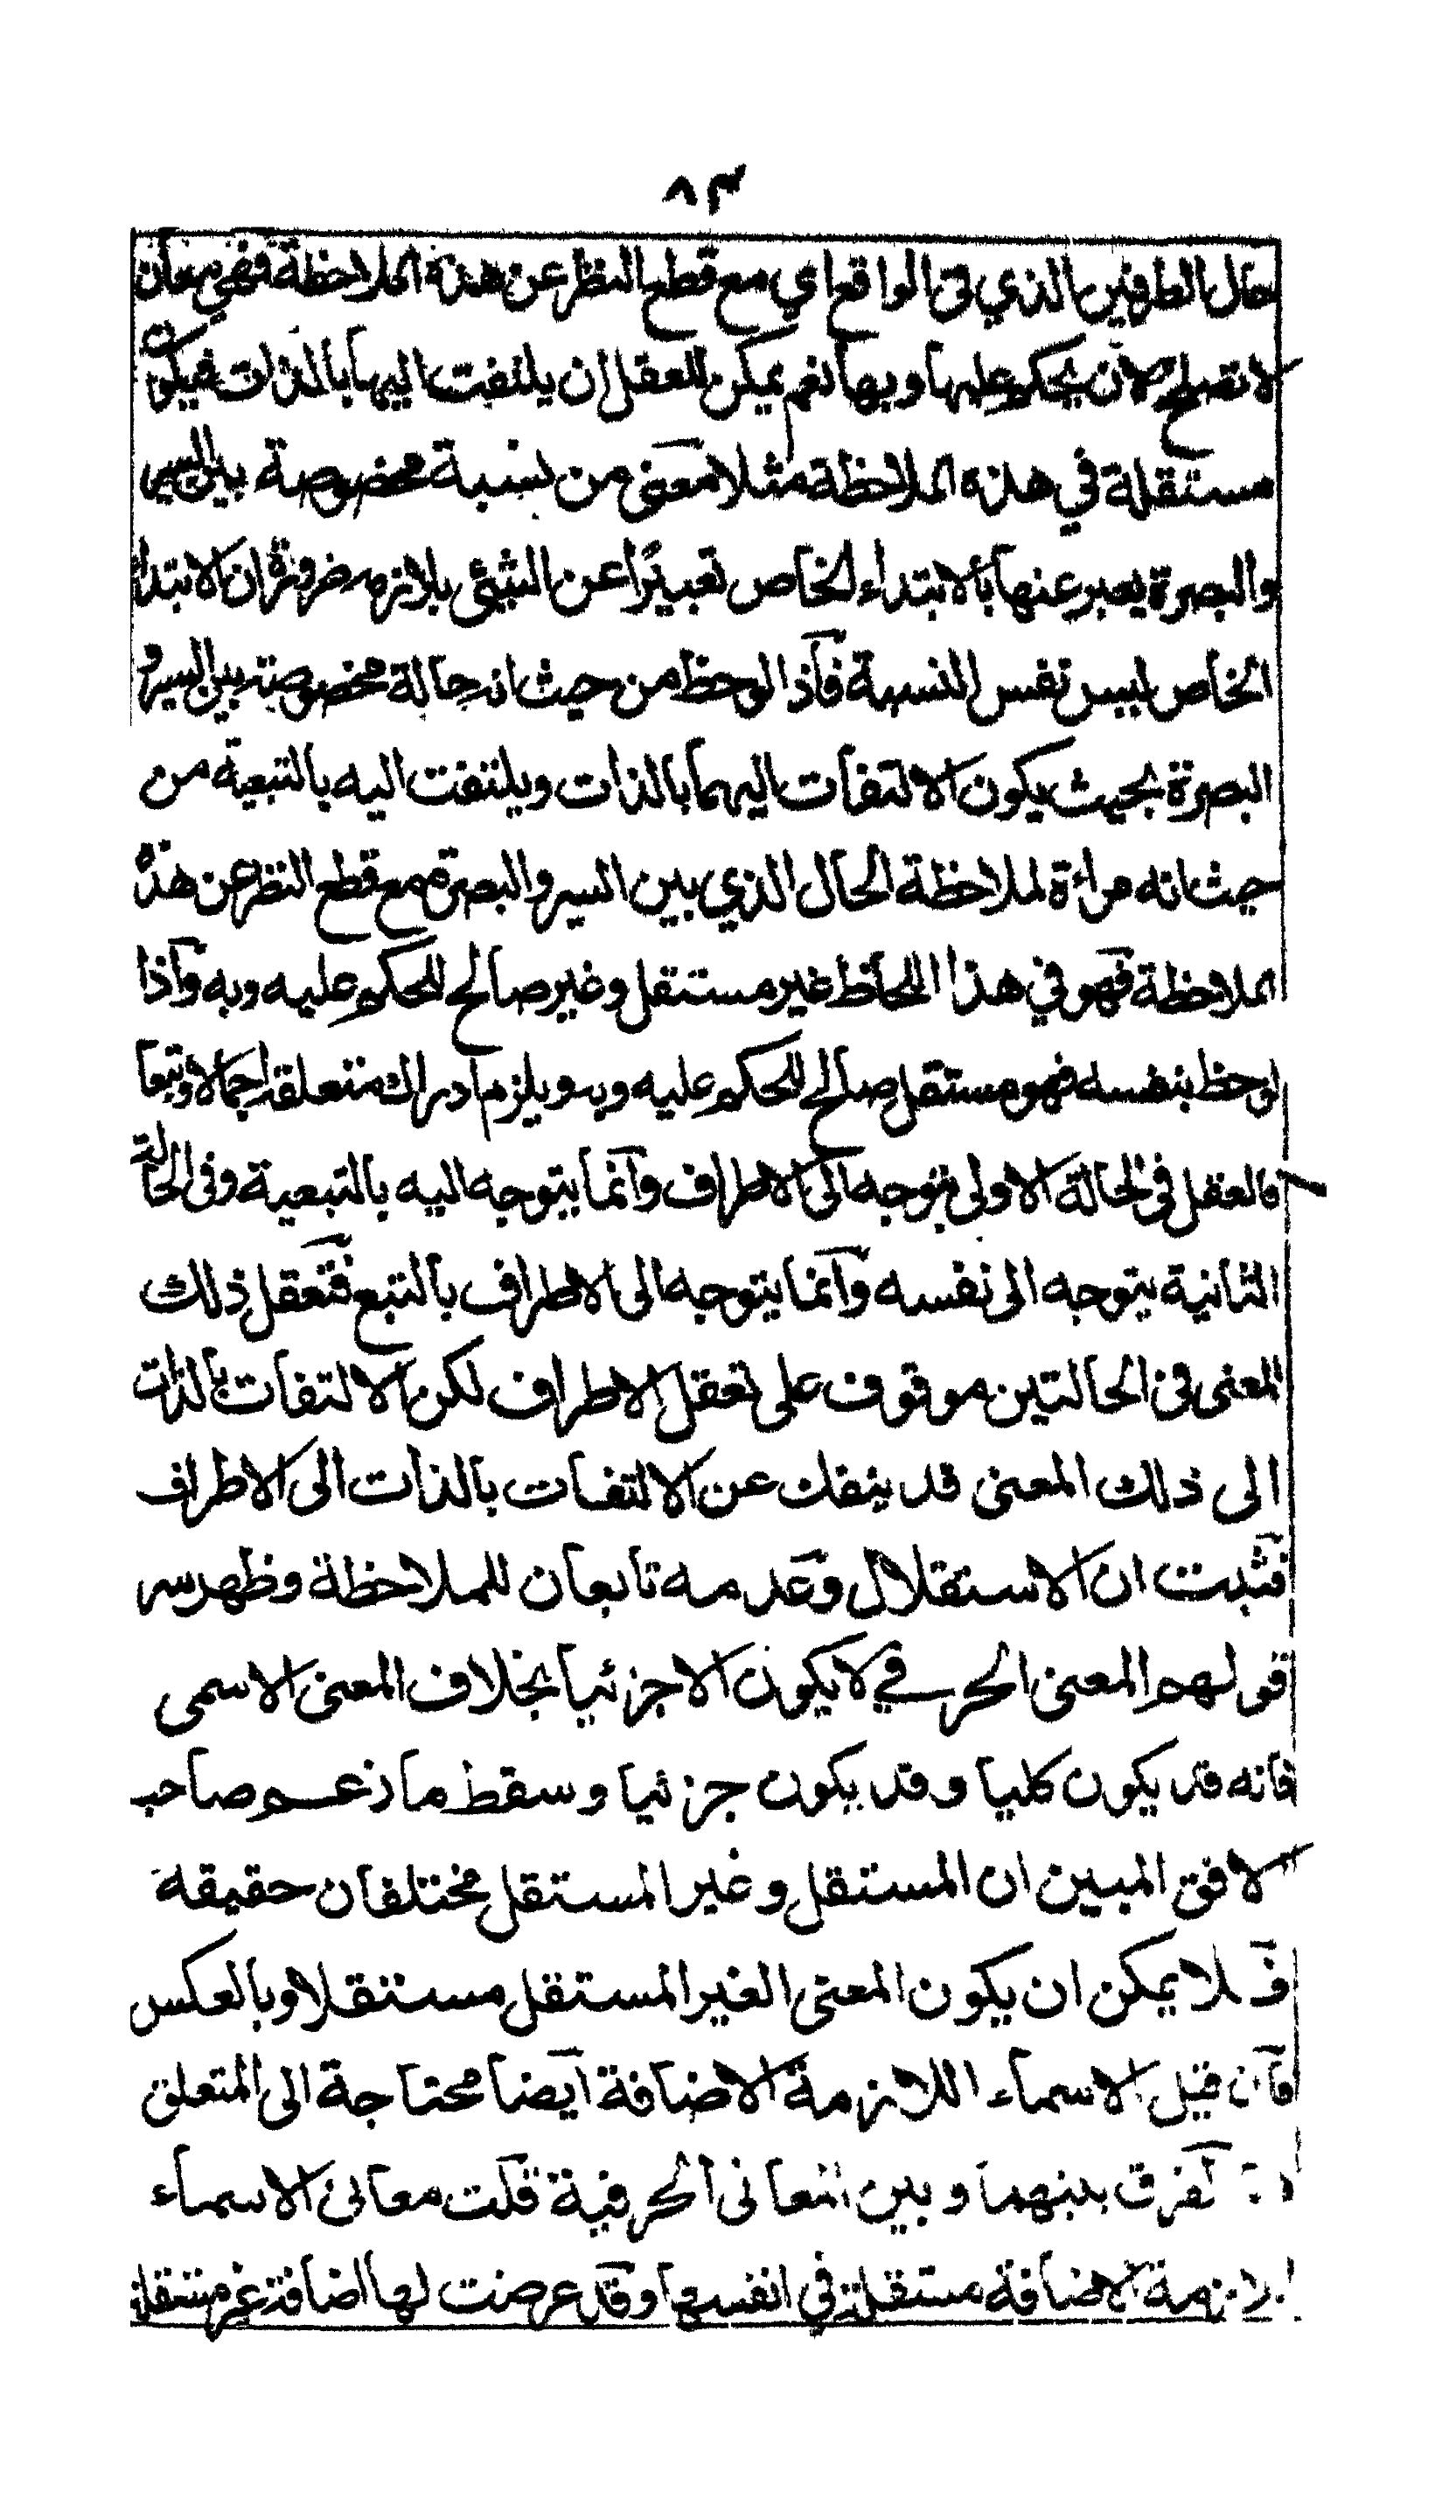 ٨٣
حال الطرفين الذي في الواقع اي مع قطع النظر عن هذه الملاحظة فهي معان
لا تصلح لان يحكم عليها وبها نعم يمكن للعقل ان يلتفت اليها بالذات فيكون
مستقلة في هذه الملاحظة مثلا معنى من نسبة مخصوصة بين السير
والبصرة يعبر عنها بالابتداء الخاص تعبيرًا عن الشيئ بلازمه ضرورة ان الابتداء
الخاص ليس نفس النسبة فاذا لوحظ من حيث انه حالة مخصوصة بين السير و
البصرة بحيث يكون الالتفات اليهما بالذات ويلتفت اليه بالتبعية من
حيث انه مراءة لملاحظة الحال الذي بين السير والبصرة مع قطع النظر عن هذه
الملاحظة فهو في هذا اللحاظ غير مستقل وغير صالح للحكم عليه وبه واذا
لوحظ بنفسه فهو مستقل صالح للحكم عليه وبه ويلزم ادراك متعلقه اجمالا وتبعا
فالعقل في الحالة الاولى يتوجه الى الاطراف وانما يتوجه اليه بالتبعية وفي الحالة
الثانية يتوجه الى نفسه وانما يتوجه الى الاطراف بالتبع فتعقل ذلك
المعنى في الحالتين موقوف على تعقل الاطراف لكن الالتفات بالذات
الى ذلك المعنى قد ينفك عن الالتفات بالذات الى الاطراف
فثبت ان الاستقلال وعدمه تابعان للملاحظة وظهر سر
قولهم المعنى الحرفي لا يكون الا جزئيا بخلاف المعنى الاسمى
فانه قد يكون كليا وقد يكون جزئيا وسقط ما زعم صاحب
الافق المبين ان المستقل وغير المستقل مختلفان حقيقة
فلا يمكن ان يكون المعنى الغير المستقل مستقلا وبالعكس
فان قيل الاسماء اللازمة الاضافة ايضا محتاجة الى المتعلق
لفرق بينهما وبين المعاني الحرفية قلت معاني الاسماء
لازمة الاضافة مستقلة في انفسها وقد عرضت لها اضافة غير مستقلة